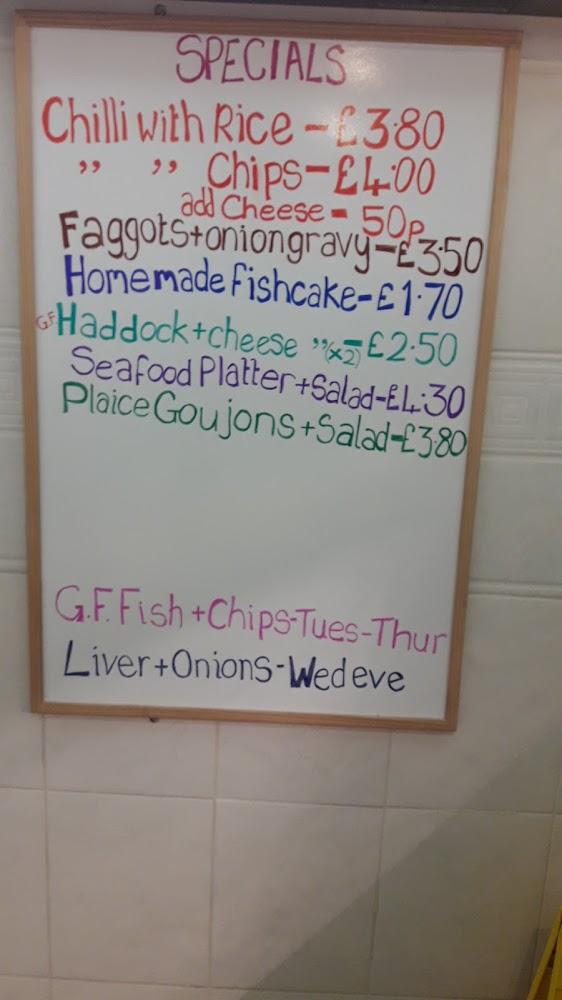 SPECIALS
Chilli with Rice - £3·80
" " Chips - £4·00
add Cheese - 50p
Faggots + onion gravy - £3·50
Homemade fishcake - £1·70
GF Haddock + cheese " (x2) - £2·50
Seafood Platter + Salad - £4·30
Plaice Goujons + Salad - £3·80
G.F. Fish + Chips - Tues - Thur
Liver + Onions - Wed eve